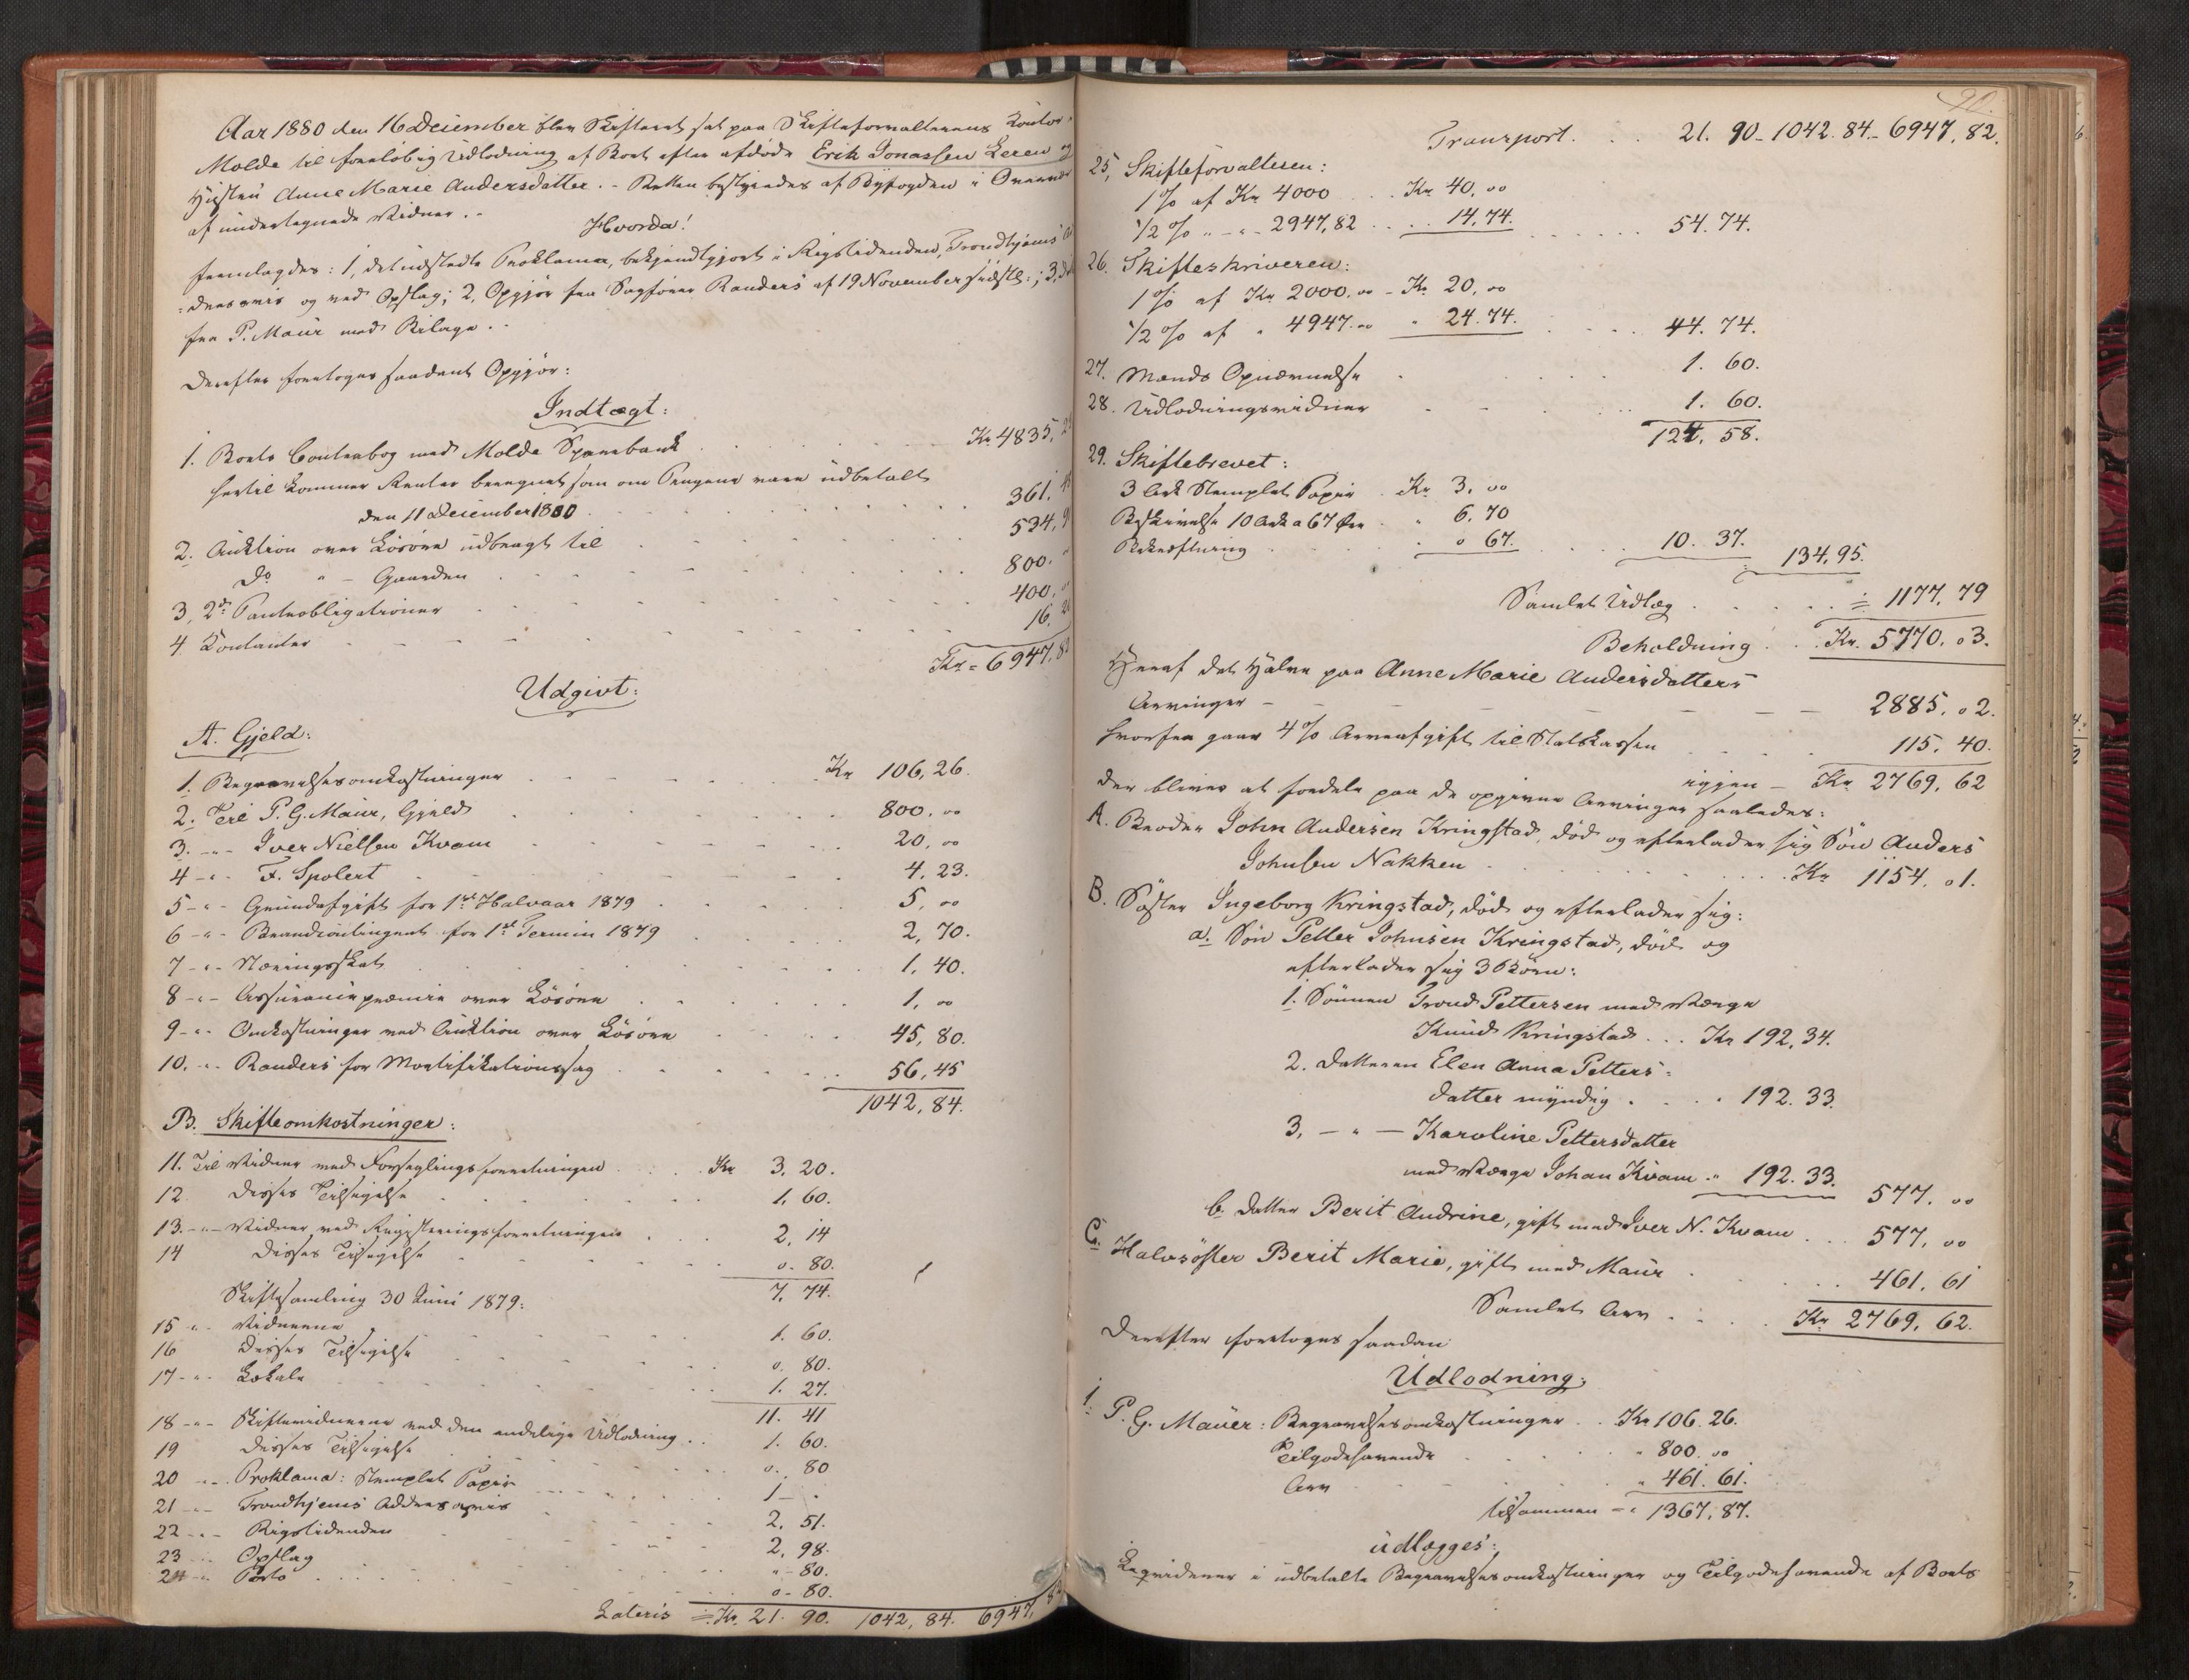 Aar 1880 den 16 Deсember blev Skifteret sat paa Skifteforvalterens Kontor
Molde til foreløbig Udlodning af Boet efter afdøde Erik Jonassen Leren og
Hustru Anne Marie Andersdatter. - Retten bestyredes af Byfogden i Overvær
af undertegnede Vidner. -
Hvorda!
fremlagdes: 1, det udstedte Proklama, bekjendtgjort i Rigstidenden, Trondhjems
=dresavis og ved Opslag; 2, Opgjør fra Sagfører Randers af 19 November sidstl:; 3,
fra P. Maur med Bilage. -
Derefter foretoges saadant Opgjør:
Indtægt:
1. Boets Contrabog med Molde Sparebank Kr. 4835,
hertil kommer Renter beregnet som om Pengene vare udbetalt
den 11 December 1880 361,
2. Auktion over Løsøre udbragt til 534,
Do " - Gaarden 800.
3, 2de Panteobligationer 400,
4. Kontanter 16.
Kr. = 6947,
Udgivt:
A. Gjeld:
1. Begravelsesomkostninger Kr 106,26.
2. Til P. G. Maur, Gjeld 800.00
3. -"- Iver Nielsen Kvam 20,00
4 -"- F. Spolert 4,23.
5 -"- Grundafgift for 1ste Halvaar 1879 5,00
6 -"- Brandcontingent for 1ste Termin 1879 2,70.
7 -"- Næringsskat 1,40.
8 -"- Assurancepræmie over Løsøre 1,00
9 -"- Omkostninger ved Auktion over Løsøre 45,80.
10. -"- Randers for Mortifikationssag 56,45
1042,84.
B. Skifteomkostninger:
11. Til Vidner ved Forseglingsforretningen Kr 3.20.
12 Disses Tilsigelse 1.60.
13. -"- Vidner ved Registreringsforretningen 2,14
14 Disses Tilsigelse 0.80.
7,74.
Skiftesamling 30 Juni 1879:
15 -"- Vidnerne 1.60.
16 Disses Tilsigelse 0.80.
17 -"- Lokale 1.27.
11.41
18 -"- Skiftevidnerne ved den endelige Udlodning 1.60.
19 Disses Tilsigelse 0.80
20 -"- Proklama: Stemplet Papir 1 -
21 -"- Trondhjems Adresavis 2.51.
22 -"- Rigstidenden 2,98.
23 -"- Opslag " - 80.
24 -"- Porto 0 - 80.
Lateris = Kr. 21.90. 1042,84. 6947,
20.
Transport. 21.90 - 1042.84 - 6947,82.
25, Skifteforvalteren:
1% af Kr 4000 Kr 40,00
1/2 % " - " - 2947,82 14,74. 54.74.
26. Skifteskriveren:
1% af Kr 2000.00 - Kr 20,00
1/2 % af " 4947.00 " 24.74. 44.74.
27. Mænds Opnævnelse 1.60.
28. Udlodningsvidner 1.60.
124,58.
29. Skiftebrevet:
3 Ark Stemplet Papir Kr 3,00
Beskrivelse 10 Ark a 67 Øre " 6.70
Bekræftning 0 67. 10.37. 134,95.
Samlet Udlæg ÷ 1177,79
Beholdning Kr. 5770.03.
Heraf det Halve paa Anne Marie Andersdatters
Arvinger 2885.02.
hvorfra gaar 4% Arveafgift til Statskassen 115.40.
igjen - Kr 2769,62
der bliver at fordele paa de opgivne Arvinger saaledes:
A. Broder John Andersen Kringstad, død og efterlader sig Søn Anders
Johnsen Nakken Kr 1154.01.
B. Søster Ingeborg Kringstad, død og efterlader sig:
a. Søn Petter Johnsen Kringstad, død og
efterlader sig 3 Børn:
1. Sønnen Trond Pettersen med Værge
Knud Kringstad Kr 192,34.
2. Datteren Elen Anna Petters=
datter myndig 192.33.
3, - " - Karoline Pettersdatter
med Værge Johan Kvam " 192.33. 577.00
b. Datter Berit Andrine, gift med Iver N. Kvam 577,00
C. Halvsøster Berit Marie, gift med Maur 461,61
Samlet Arv Kr 2769,62.
Derefter foretoges saadan
Udlodning:
1. P. G. Mauer: Begravelsesomkostninger Kr 106.26.
Tilgodehavende " 800.00
Arv " 461.61.
tilsammen - " 1367,87.
udlægges:
Liqviderer i udbetalte Begravelsesomkostninger og Tilgodehavende af Boets